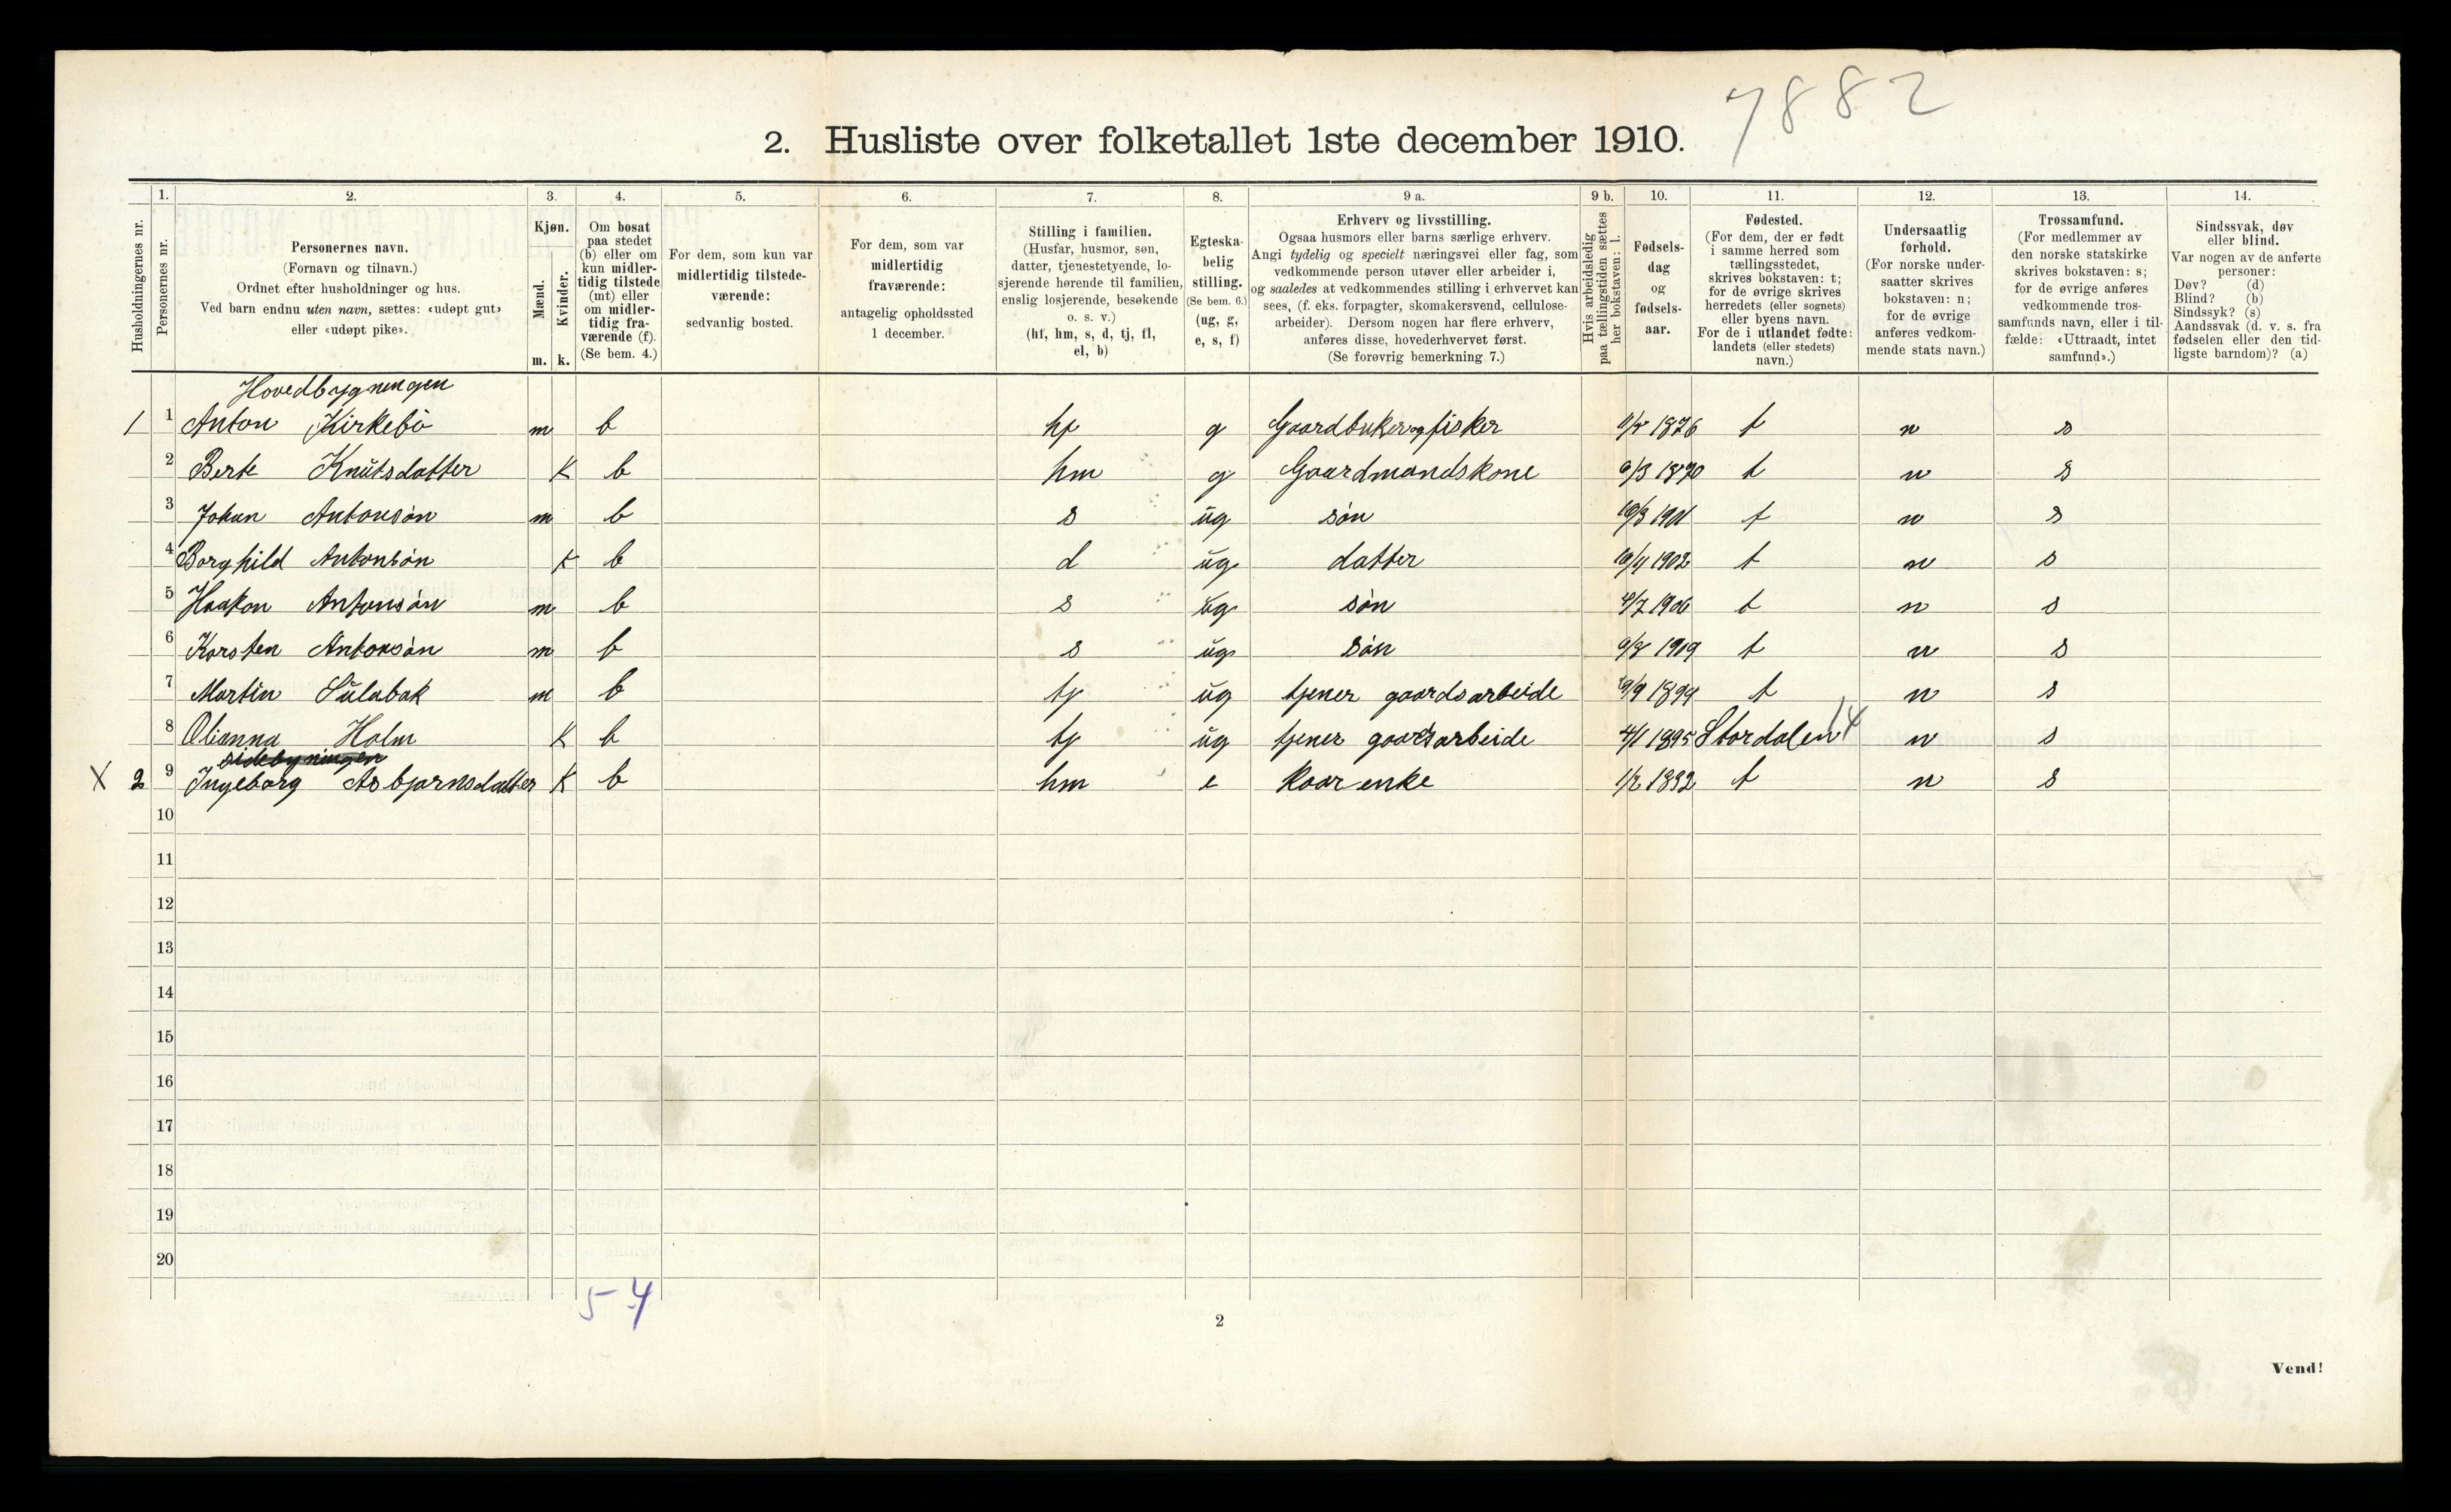 7882
2. Husliste over folketallet 1ste december 1910.
Husholdningernes nr.
1. Personernes nr.
2. Personernes navn. (Fornavn og tilnavn.) Ordnet efter husholdninger og hus. Ved barn endnu uten navn, sættes: «udøpt gut» eller «udøpt pike».
3. Kjøn. Mænd. m. Kvinder. k.
4. Om bosat paa stedet (b) eller om kun midlertidig tilstede (mt) eller om midlertidig fraværende (f). (Se bem. 4.)
5. For dem, som kun var midlertidig tilstedeværende: sedvanlig bosted.
6. For dem, som var midlertidig fraværende: antagelig opholdssted 1 december.
7. Stilling i familien. (Husfar, husmor, søn, datter, tjenestetyende, losjerende hørende til familien, enslig losjerende, besøkende o. s. v.) (hf, hm, s, d, tj, fl, el, b)
8. Egteskabelig stilling. (Se bem. 6.) (ug, g, e, s, f)
9 a. Erhverv og livsstilling. Ogsaa husmors eller barns særlige erhverv. Angi tydelig og specielt næringsvei eller fag, som vedkommende person utøver eller arbeider i, og saaledes at vedkommendes stilling i erhvervet kan sees, (f. eks. forpagter, skomakersvend, cellulosearbeider). Dersom nogen har flere erhverv, anføres disse, hovederhvervet først. (Se forøvrig bemerkning 7.)
9 b. Hvis arbeidsledig paa tællingstiden sættes her bokstaven: l.
10. Fødselsdag og fødselsaar.
11. Fødested. (For dem, der er født i samme herred som tællingsstedet, skrives bokstaven: t; for de øvrige skrives herredets (eller sognets) eller byens navn. For de i utlandet fødte: landets (eller stedets) navn.)
12. Undersaatlig forhold. (For norske undersaatter skrives bokstaven: n; for de øvrige anføres vedkommende stats navn.)
13. Trossamfund. (For medlemmer av den norske statskirke skrives bokstaven: s; for de øvrige anføres vedkommende trossamfunds navn, eller i tilfælde: «Uttraadt, intet samfund».)
14. Sindssvak, døv eller blind. Var nogen av de anførte personer: Døv? (d) Blind? (b) Sindssyk? (s) Aandssvak (d. v. s. fra fødselen eller den tidligste barndom)? (a)
Hovedbygningen
1 1 Anton Kirkebö m b hf g Gaardbruker og fisker 1876 t n s
2 Berte Knutsdatter k b hm g Gaardmandskone 9/3 1870 t n s
3 Johan Antonsön m b s ug sön t n s
4 Borghild Antonsön k b d ug datter 1902 t n s
5 Haakon Antonsön m b s ug sön 4/7 1906 t n s
6 Korsten Antonsön m b s ug sön t n s
7 Martin Sulebak m b tj ug tjener gaardsarbeide t n s
8 Olianna Holm k b tj ug tjener gaardsarbeide 4/1 1895 Stordalen n s
sidebyningen
X 2 9 Ingeborg Asbjørnsdatter k b hm e Kaarenke 1/2 1832 t n s
10
11
12
13
14
15
16
17
18
19
20
5 4
2
Vend!